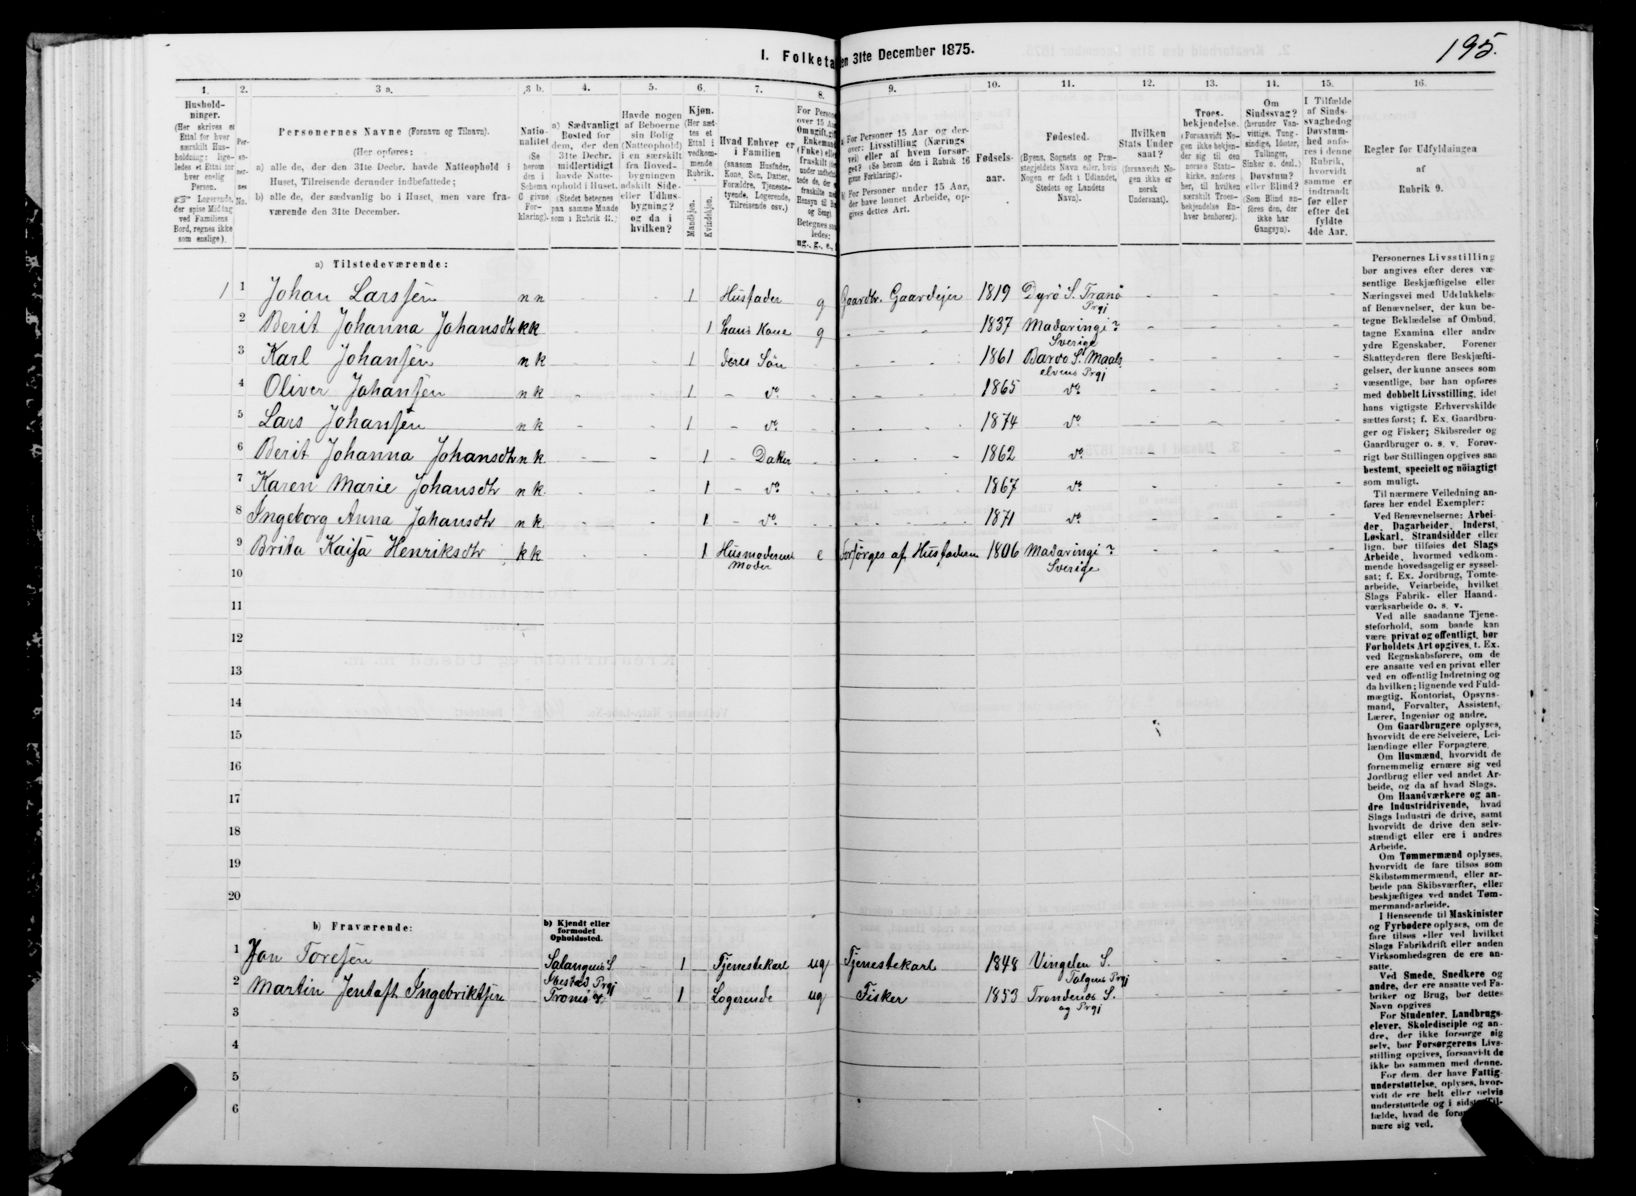 195.
I. Folketa en 31te December 1875.
1. 2. 3 a. 3 b. 4. 5. 6. 7. 8. 9. 10. 11. 12. 13. 14. 15. 16.
Hushold-
ninger.
(Her skrives et
Ettal for hver
særskilt Hus-
holdning; lige-
ledes et Ettal for
hver enslig
Person.
Logerende,
der spise Middag
ved Familiens
Bord, regnes ikke
som enslige).
Per-
so-
ner-
nes
No.
Personernes Navne (Fornavn og Tilnavn).
(Her opføres:
a) alle de, der den 31te Decbr. havde Natteophold i
Huset, Tilreisende derunder indbefattede;
b) alle de, der sædvanlig bo i Huset, men vare fra-
værende den 31te December.
Natio-
nalitet
(Se
herom
den i
Schema
C givne
For-
klaring).
a) Sædvanligt
Bosted for
dem, der den
31te Decbr.
midlertidigt
havde Natte-
ophold i Huset.
(Stedet betegnes
paa samme Maade
som i Rubrik 11.)
Havde nogen
af Beboerne
sin Bolig
(Natteophold)
i en særskilt
fra Hoved-
bygningen
adskilt Side-
eller Udhus-
bygning?
og da i
hvilken?
Kjøn.
(Her sæt-
tes et
Ettal i
vedkom-
mende
Rubrik.
Mandkjøn.
Kvindekjøn.
Hvad Enhver er
i Familien
(saasom Husfader,
Kone, Søn, Datter,
Forældre, Tjeneste-
tyende, Logerende,
Tilreisende osv.)
For Person
over 15 Aar
Om ugift, gift
Enkemand
(Enke) eller
fraskilt
Betegnes saa-
ledes:
ug., g., e.,
a) For Personer 15 Aar og der-
over: Livsstilling (Nærings-
vei) eller af hvem forsør-
get? (Se herom den i Rubrik 16
givne Forklaring).
b) For Personer under 15 Aar,
der have lønnet Arbeide, op-
gives dettes Art.
Fødsels-
aar.
Fødested.
(Byens, Sognets og Præ-
stegjeldets Navn eller, hvis
Nogen er født i Udlandet,
Stedets og Landets
Navn).
Hvilken
Stats Under-
saat?
(forsaavidt No-
gen ikke er
norsk
Undersaat).
Troes-
bekjendelse.
(Forsaavidt No-
gen ikke bekjen-
der sig til den
norske Stats-
kirke, anføres
her, til hvilken
særskilt Troes-
bekjendelse En-
hver henhører).
Om
Sindssvag?
(herunder Van-
vittige, Tung-
sindige, Idioter,
Tullinger,
Sinker o. desl.)
Døvstum?
eller Blind?
(Som Blind an-
føres den, der
ikke har
Gangsyn).
I Tilfælde
af Sinds-
svaghed og
Døvstum-
hed anfø-
res i denne
Rubrik,
hvorvidt
samme er
indtraadt
før eller
efter det
fyldte
4de Aar.
Regler for Udfyldningen
af
Rubrik 9.
a) Tilstedeværende:
1 1 Johan Larssen n n - - 1 Husfader g Gaardbr. Gaardejer 1819 Dyrø S. Tranø Prgj - - - -
2 Berit Johanna Johansdtr k k - - 1 hans Kone g - - - 1837 Madaringi? Sverige - - - -
3 Karl Johansen n k - - 1 deres Søn - - - 1861 Bardo S. Maals elvens Prgj - - - -
4 Oliver Johansen n k - - 1 - do - - - 1865 do - - - -
5 Lars Johansen n k - - 1 - do - - - 1874 do - - - -
6 Berit Johanna Johansdtr n k - - 1 - Datter - - - 1862 do - - - -
7 Karen Marie Johansdtr n k - - 1 - do - - - 1867 do - - - -
8 Ingeborg Anna Johansdtr n k - - 1 - do - - - 1871 do - - - -
9 Brita Kaisa Henriksdtr k k - - 1 Husmoderens Moder e Forsørges af Husfaderen 1806 Madaringi? Sverige - - - -
10
11
12
13
14
15
16
17
18
19
20
b) Fraværende:
b) Kjendt eller
formodet
Opholdssted.
1 Jon Toresen Salangens S. Ibestad Prgj - 1 Tjenestekarl ug Tjenestekarl 1848 Vingelen S. Tolgens Prgj - - - -
2 Martin Jentoft Ingebriktsen Tromsø - 1 Logerende ug Fisker 1853 Trondenæs S. og Prgj - - - -
3
4
5
6
Personernes Livsstilling
bør angives efter deres væ-
sentlige Beskjæftigelse eller
Næringsvei med Udelukkelse
af Benævnelser, der kun be-
tegne Beklædelse af Ombud,
tagne Examina eller andre
ydre Egenskaber. Forener
Skatteyderen flere Beskjæfti-
gelser, der kunne ansees som
væsentlige, bør han opføres
med dobbelt Livsstilling, idet
hans vigtigste Erhvervskilde
sættes først; f. Ex. Gaardbru-
ger og Fisker; Skibsreder og
Gaardbruger o. s. v. Forøv-
rigt bør Stillingen opgives saa
bestemt, specielt og nöiagtigt
som muligt.
Til nærmere Veiledning an-
føres her endel Exempler:
Ved Benævnelserne: Arbei-
der, Dagarbeider, Inderst,
Løskarl, Strandsidder eller
lign. bør tilføies det Slags
Arbeide, hvormed vedkom-
mende hovedsagelig er syssel-
sat; f. Ex. Jordbrug, Tomte-
arbeide, Veiarbeide, hvilket
Slags Fabrik- eller Haand-
værksarbeide o. s. v.
Ved alle saadanne Tjene-
steforhold, som baade kan
være privat og offentligt, bør
Forholdets Art opgives, t. Ex.
ved Regnskabsførere, om de
ere ansatte ved en privat eller
ved en offentlig Indretning og
da hvilken; lignende ved Fuld-
mægtig, Kontorist, Opsyns-
mand, Forvalter, Assistent,
Lærer, Ingeniør og andre.
Om Gaardbrugere oplyses,
hvorvidt de ere Selveiere, Lei-
lændinge eller Forpagtere.
Om Husmænd, hvorvidt de
fornemmelig ernære sig ved
Jordbrug eller ved andet Ar-
beide, og da af hvad Slags.
Om Haandværkere og an-
dre Industridrivende, hvad
Slags Industri de drive, samt
hvorvidt de drive den selv-
stændigt eller ere i andres
Arbeide.
Om Tømmermænd oplyses,
hvorvidt de fare tilsøs som
Skibstømmermænd, eller ar-
beide paa Skibsværfter, eller
beskjæftiges ved andet Tøm-
mermandsarbeide.
I Henseende til Maskinister
og Fyrbødere oplyses, om de
fare tilsøs eller ved hvilket
Slags Fabrikdrift eller anden
Virksomhedsgren de ere an-
satte.
Ved Smede, Snedkere og
andre, der ere ansatte ved Fa-
briker og Brug, bør dettes
Navn opgives
For Studenter, Landbrugs-
elever, Skoledisciple og an-
dre, der ikke forsørge sig
selv, bør Forsørgerens Livs-
stilling opgives, forsaavidt de
ikke bo sammen med denne.
For dem, der have Fattig-
understøttelse, oplyses, hvor-
vidt de ere helt eller delvis
understøttede og i sidste Til-
fælde, hvad de forøv
nære sig ved.